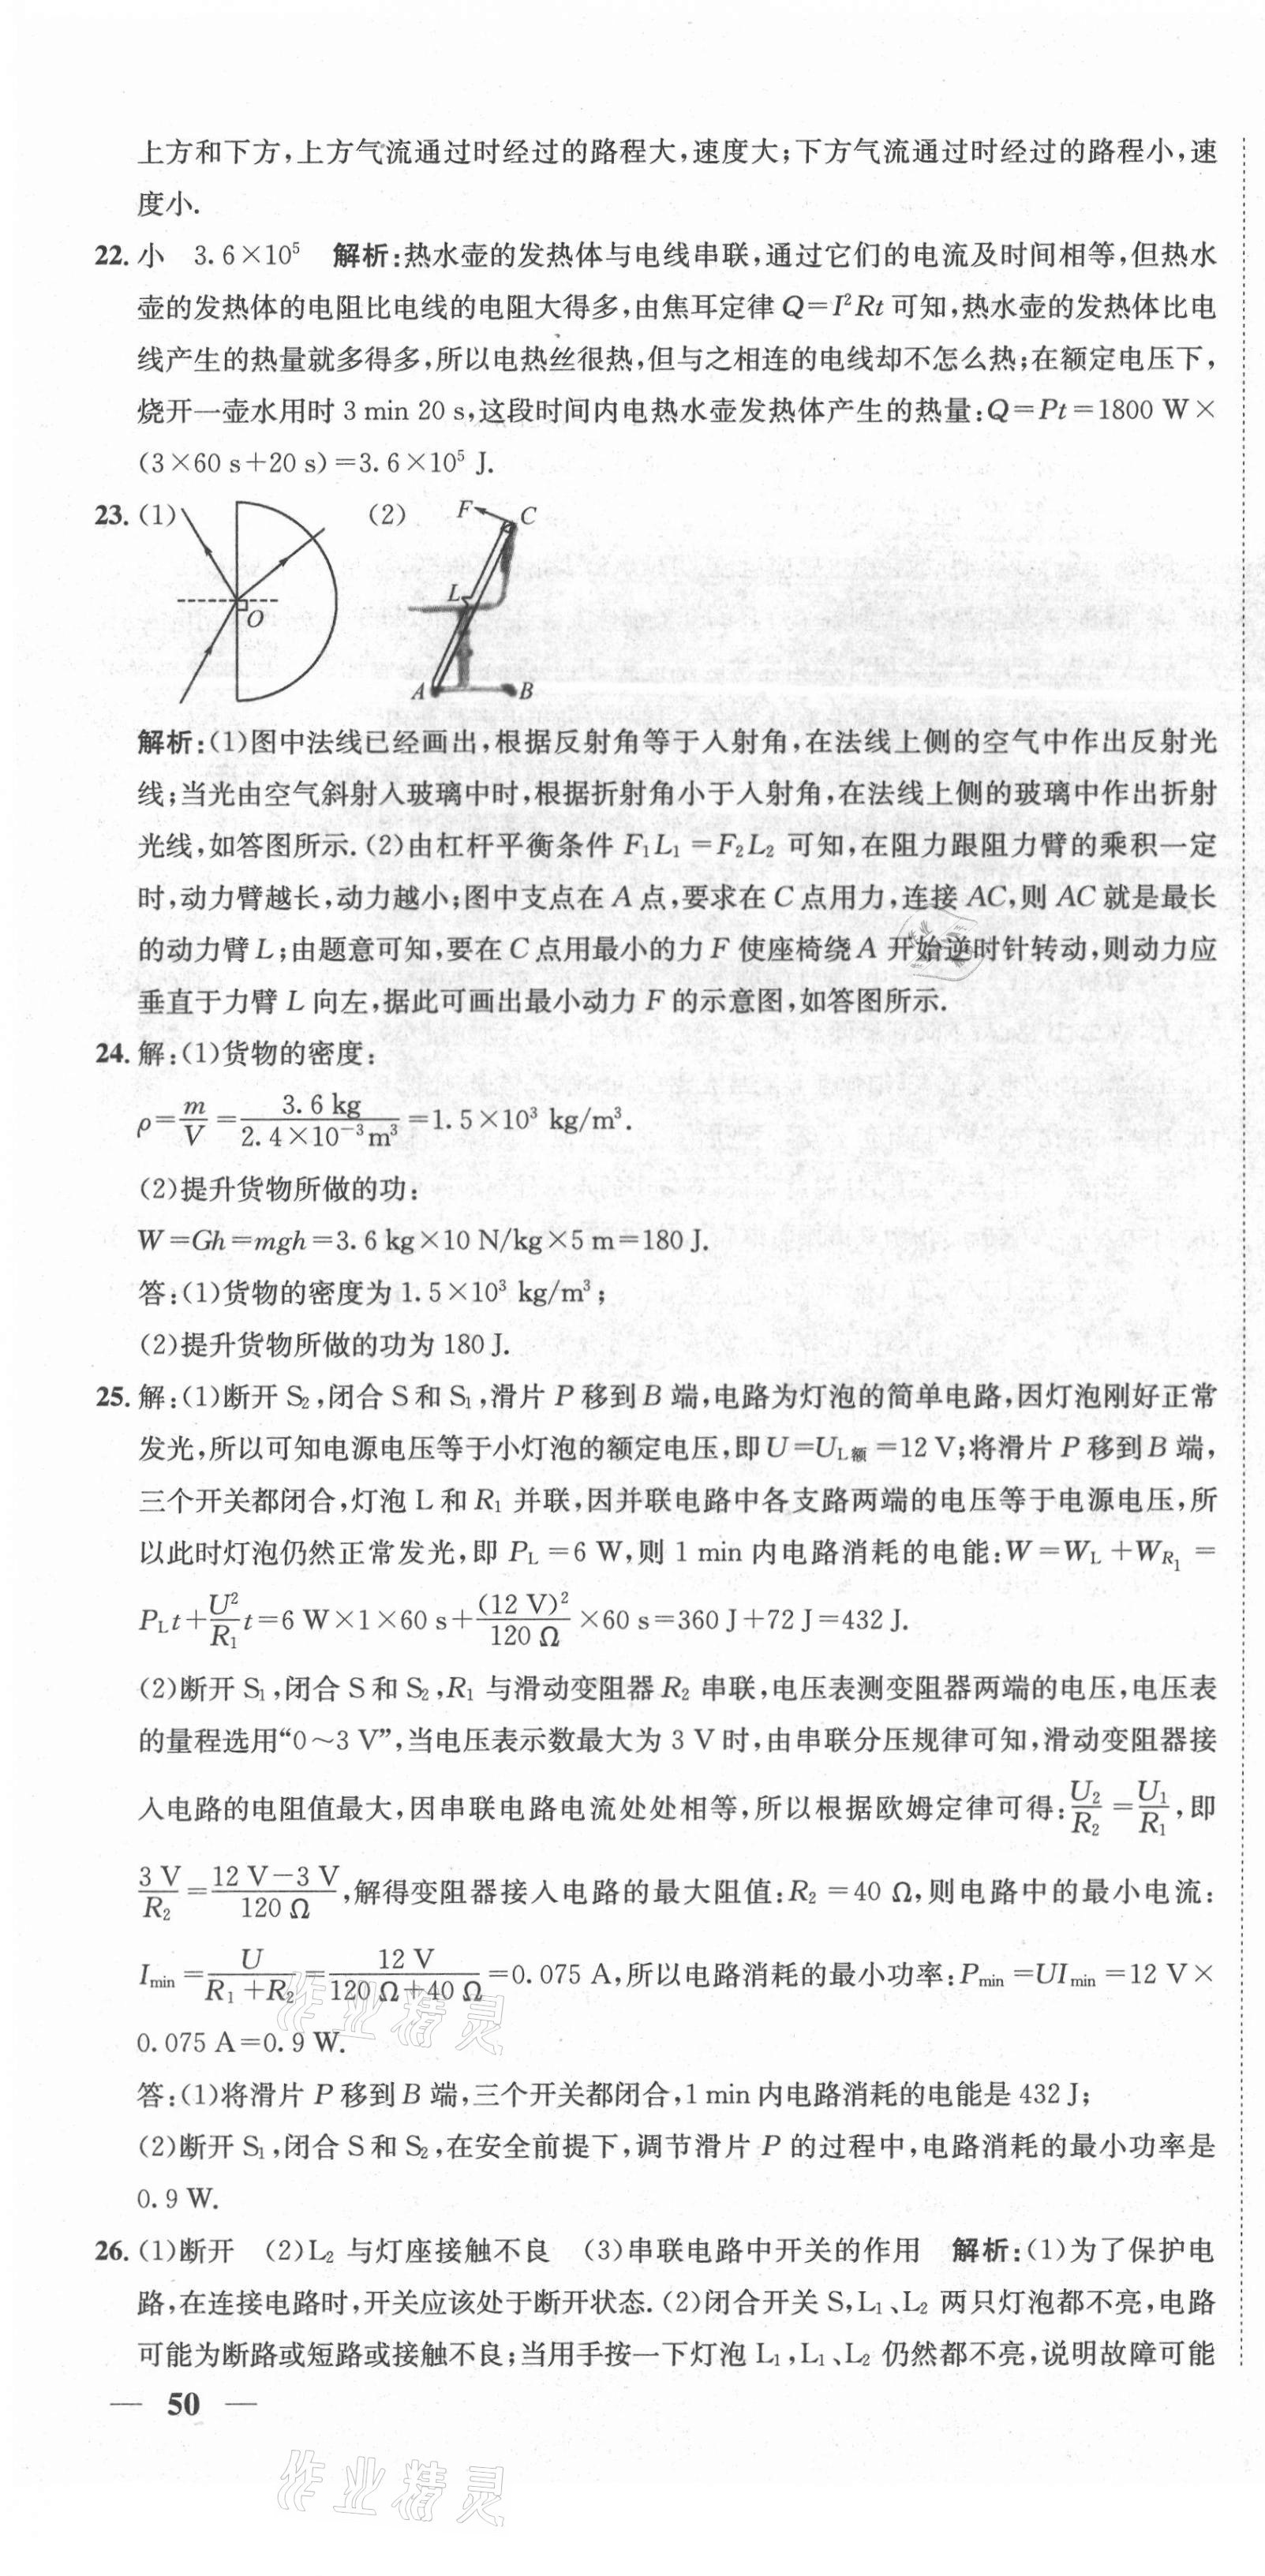 上方和下方,上方气流通过时经过的路程大,速度大;下方气流通过时经过的路程小,速
度小.
22. 小 3.6×10⁵ 解析:热水壶的发热体与电线串联,通过它们的电流及时间相等,但热水
壶的发热体的电阻比电线的电阻大得多,由焦耳定律 Q=I²Rt 可知,热水壶的发热体比电
线产生的热量就多得多,所以电热丝很热,但与之相连的电线却不怎么热;在额定电压下,
烧开一壶水用时 3 min 20 s,这段时间内电热水壶发热体产生的热量:Q=Pt=1800 W×
(3×60 s+20 s)=3.6×10⁵ J.
23. (1) O (2) F C L A B
解析:(1)图中法线已经画出,根据反射角等于入射角,在法线上侧的空气中作出反射光
线;当光由空气斜射入玻璃中时,根据折射角小于入射角,在法线上侧的玻璃中作出折射
光线,如答图所示.(2)由杠杆平衡条件 F₁L₁=F₂L₂ 可知,在阻力跟阻力臂的乘积一定
时,动力臂越长,动力越小;图中支点在 A 点,要求在 C 点用力,连接 AC,则 AC 就是最长
的动力臂 L;由题意可知,要在 C 点用最小的力 F 使座椅绕 A 开始逆时针转动,则动力应
垂直于力臂 L 向左,据此可画出最小动力 F 的示意图,如答图所示.
24. 解:(1)货物的密度:
ρ=m/V=3.6 kg/2.4×10⁻³m³=1.5×10³ kg/m³.
(2)提升货物所做的功:
W=Gh=mgh=3.6 kg×10 N/kg×5 m=180 J.
答:(1)货物的密度为 1.5×10³ kg/m³;
(2)提升货物所做的功为 180 J.
25. 解:(1)断开 S₂,闭合 S 和 S₁,滑片 P 移到 B 端,电路为灯泡的简单电路,因灯泡刚好正常
发光,所以可知电源电压等于小灯泡的额定电压,即 U=U_L额=12 V;将滑片 P 移到 B 端,
三个开关都闭合,灯泡 L 和 R₁ 并联,因并联电路中各支路两端的电压等于电源电压,所
以此时灯泡仍然正常发光,即 P_L=6 W,则 1 min 内电路消耗的电能:W=W_L+W_R₁=
P_Lt+U²/R₁t=6 W×1×60 s+(12 V)²/120 Ω×60 s=360 J+72 J=432 J.
(2)断开 S₁,闭合 S 和 S₂,R₁ 与滑动变阻器 R₂ 串联,电压表测变阻器两端的电压,电压表
的量程选用“0~3 V”,当电压表示数最大为 3 V 时,由串联分压规律可知,滑动变阻器接
入电路的电阻值最大,因串联电路电流处处相等,所以根据欧姆定律可得:U₂/R₂=U₁/R₁,即
3 V/R₂=12 V-3 V/120 Ω,解得变阻器接入电路的最大阻值:R₂=40 Ω,则电路中的最小电流:
I_min=U/R₁+R₂=12 V/120 Ω+40 Ω=0.075 A,所以电路消耗的最小功率:P_min=UI_min=12 V×
0.075 A=0.9 W.
答:(1)将滑片 P 移到 B 端,三个开关都闭合,1 min 内电路消耗的电能是 432 J;
(2)断开 S₁,闭合 S 和 S₂,在安全前提下,调节滑片 P 的过程中,电路消耗的最小功率是
0.9 W.
26. (1)断开 (2)L₂ 与灯座接触不良 (3)串联电路中开关的作用 解析:(1)为了保护电
路,在连接电路时,开关应该处于断开状态.(2)闭合开关 S,L₁、L₂ 两只灯泡都不亮,电路
可能为断路或短路或接触不良;当用手按一下灯泡 L₁,L₁、L₂ 仍然都不亮,说明故障可能
— 50 —
作业精灵
作业精灵